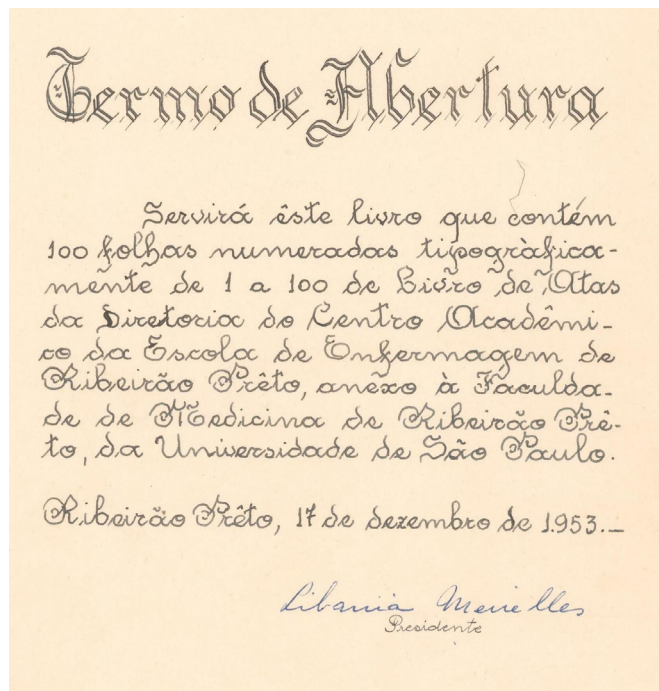 Termo de Abertura
Servirá êste livro que contém
100 folhas numeradas tipogràfica-
mente de 1 a 100 de Livro de Atas
da Diretoria do Centro Acadêmi-
co da Escola de Enfermagem de
Ribeirão Prêto, anexo à Faculda-
de de Medicina de Ribeirão Prê-
to, da Universidade de São Paulo.
Ribeirão Prêto, 17 de dezembro de 1.953.—
Libania Meirelles
Presidente